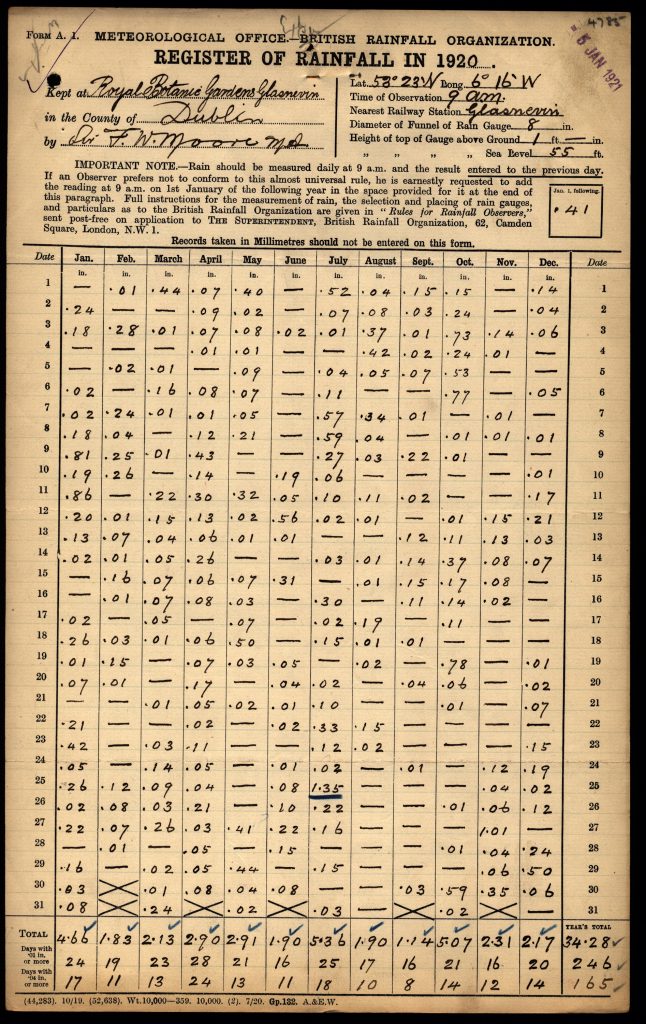 4785
FORM A. 1. METEOROLOGICAL OFFICE.—BRITISH RAINFALL ORGANIZATION.
REGISTER OF RAINFALL IN 1920.
5 JAN 1921
Kept at Royal Botanic Gardens Glasnevin
in the County of Dublin
by Sir F. W. Moore
Lat. 53° 23' N Long. 6° 15' W
Time of Observation 9 a.m.
Nearest Railway Station Glasnevin
Diameter of Funnel of Rain Gauge 8 in.
Height of top of Gauge above Ground 1 ft. — in.
" " " " Sea Level 55 ft.
IMPORTANT NOTE.—Rain should be measured daily at 9 a.m. and the result entered to the previous day.
If an Observer prefers not to conform to this almost universal rule, he is earnestly requested to add
the reading at 9 a.m. on 1st January of the following year in the space provided for it at the end of
this paragraph. Full instructions for the measurement of rain, the selection and placing of rain gauges,
and particulars as to the British Rainfall Organization are given in "Rules for Rainfall Observers,"
sent post-free on application to THE SUPERINTENDENT, British Rainfall Organization, 62, Camden
Square, London, N.W. 1.
Jan. 1, following.
.41
Records taken in Millimetres should not be entered on this form.
Date Jan. Feb. March April May June July August Sept. Oct. Nov. Dec. Date
in. in. in. in. in. in. in. in. in. in. in. in.
1 — .01 .44 .07 .40 — .52 .04 .15 .15 — .14 1
2 .24 — — .09 .02 — .07 .08 .03 .24 — .04 2
3 .18 .28 .01 .07 .08 .02 .01 .37 .01 .73 .14 .06 3
4 — — — .01 .01 — — .42 .02 .24 .01 — 4
5 — .02 .01 — .09 — .04 .05 .07 .53 — — 5
6 .02 — .16 .08 .07 — .11 — — .77 — .05 6
7 .02 .24 .01 .01 .05 — .57 .34 .01 — .01 — 7
8 .18 .04 — .12 .21 — .59 .04 — .01 .01 .01 8
9 .81 .25 .01 .43 — — .27 .03 .22 .01 — — 9
10 .19 .26 — .14 — .19 .06 — — — — .01 10
11 .86 — .22 .30 .32 .05 .10 .11 .02 — — .17 11
12 .20 .01 .15 .13 .02 .56 .02 .01 — .01 .15 .21 12
13 .13 .07 .04 .06 .01 .01 — — .12 .11 .13 .03 13
14 .02 .01 .05 .26 — — .03 .01 .14 .37 .08 .07 14
15 — .16 .07 .06 .07 .31 — .01 .15 .17 .08 — 15
16 — .01 .07 .08 .03 — .30 — .11 .14 .02 — 16
17 .02 — .05 — .07 — .02 .19 — .11 — — 17
18 .26 .03 .01 .06 .50 — .15 .01 .01 — — — 18
19 .01 .15 — .07 .03 .05 — .02 — .78 — .01 19
20 .07 .01 — .17 — .04 .02 — .04 .06 — .02 20
21 — — .01 .05 .02 .01 .10 — — .01 — .07 21
22 .21 — — .02 — .02 .33 .15 — — — — 22
23 .42 — .03 .11 — — .12 .02 — — — .15 23
24 .05 — .14 .05 — .01 .02 — .01 — .12 .19 24
25 .26 .12 .09 .04 — .08 1.35 — — — .04 .02 25
26 .02 .08 .03 .21 — .10 .22 — — .01 .06 .12 26
27 .22 .07 .26 .03 .41 .22 .16 — — — 1.01 — 27
28 — .01 — .05 — .15 — — — .01 .04 .24 28
29 .16 — .02 .05 .44 — .15 — — — .06 .50 29
30 .03 .01 .08 .04 .08 — — .03 .59 .35 .06 30
31 .08 .24 .02 .03 — .02 — 31
TOTAL 4.66 1.83 2.13 2.90 2.91 1.90 5.36 1.90 1.14 5.07 2.31 2.17 YEAR'S TOTAL 34.28
Days with .01 in. or more 24 19 23 28 21 16 25 17 16 21 16 20 246
Days with .04 in. or more 17 11 13 24 13 11 18 10 8 14 12 14 165
(44,283). 10/19. (52,638). Wt.10,000—359. 10,000. (2). 7/20. Gp.132. A.&E.W.